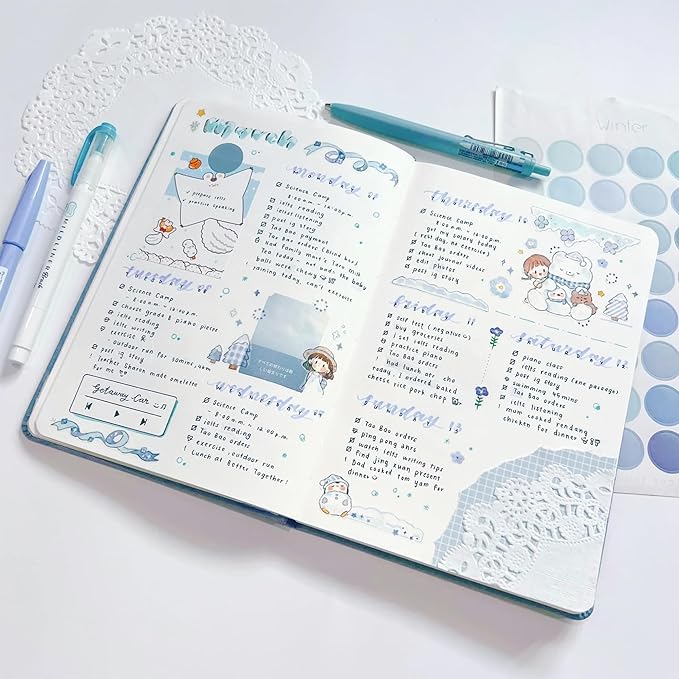 March
monday
✓ prepare ielts
✓ practice speaking
Science Camp
8.00am - 12.00pm
ielts reading
ielts listening
post ig story
Tao Bao payment
Tao Bao orders
! had Family Mart's
balls were chewy
raining today, can't exercise
tuesday
Science Camp
8.00am - 12.00pm
choose grade 8 piano pieces
ielts reading
ielts writing
exercise
outdoor run for 50mins
post ig story
! teacher Sharon made omelette
for me
Getaway Car
wednesday
Science Camp
8.00am - 12.00pm
ielts reading
Tao Bao orders
exercise outdoor run
! Lunch at Better Together!
thursday
Science Camp
8.00am - 12.00pm
got my salary today
( rest day, no exercise )
Tao Bao orders
short journal videos
edit photos
post ig story
friday
self test ( negative )
buy groceries
! set ielts reading
practice piano
Tao Bao orders
! had lunch at
today. I ordered baked
cheese rice pork chop
saturday
piano class
ielts reading (one passage)
post ig story
swimming 45mins
Tao Bao orders
ielts listening
! mum cooked rendang
chicken for dinner
sunday 13
Tao Bao orders
ping pong 2hrs
watch ielts writing tips
find jing xuan present
! Dad cooked tom yam for
dinner
Winter
MILDLINER